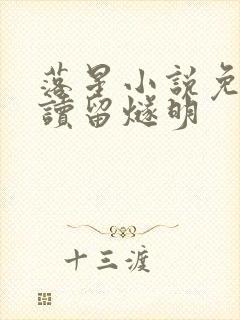 落星小說免
讀留燧明
十三渡